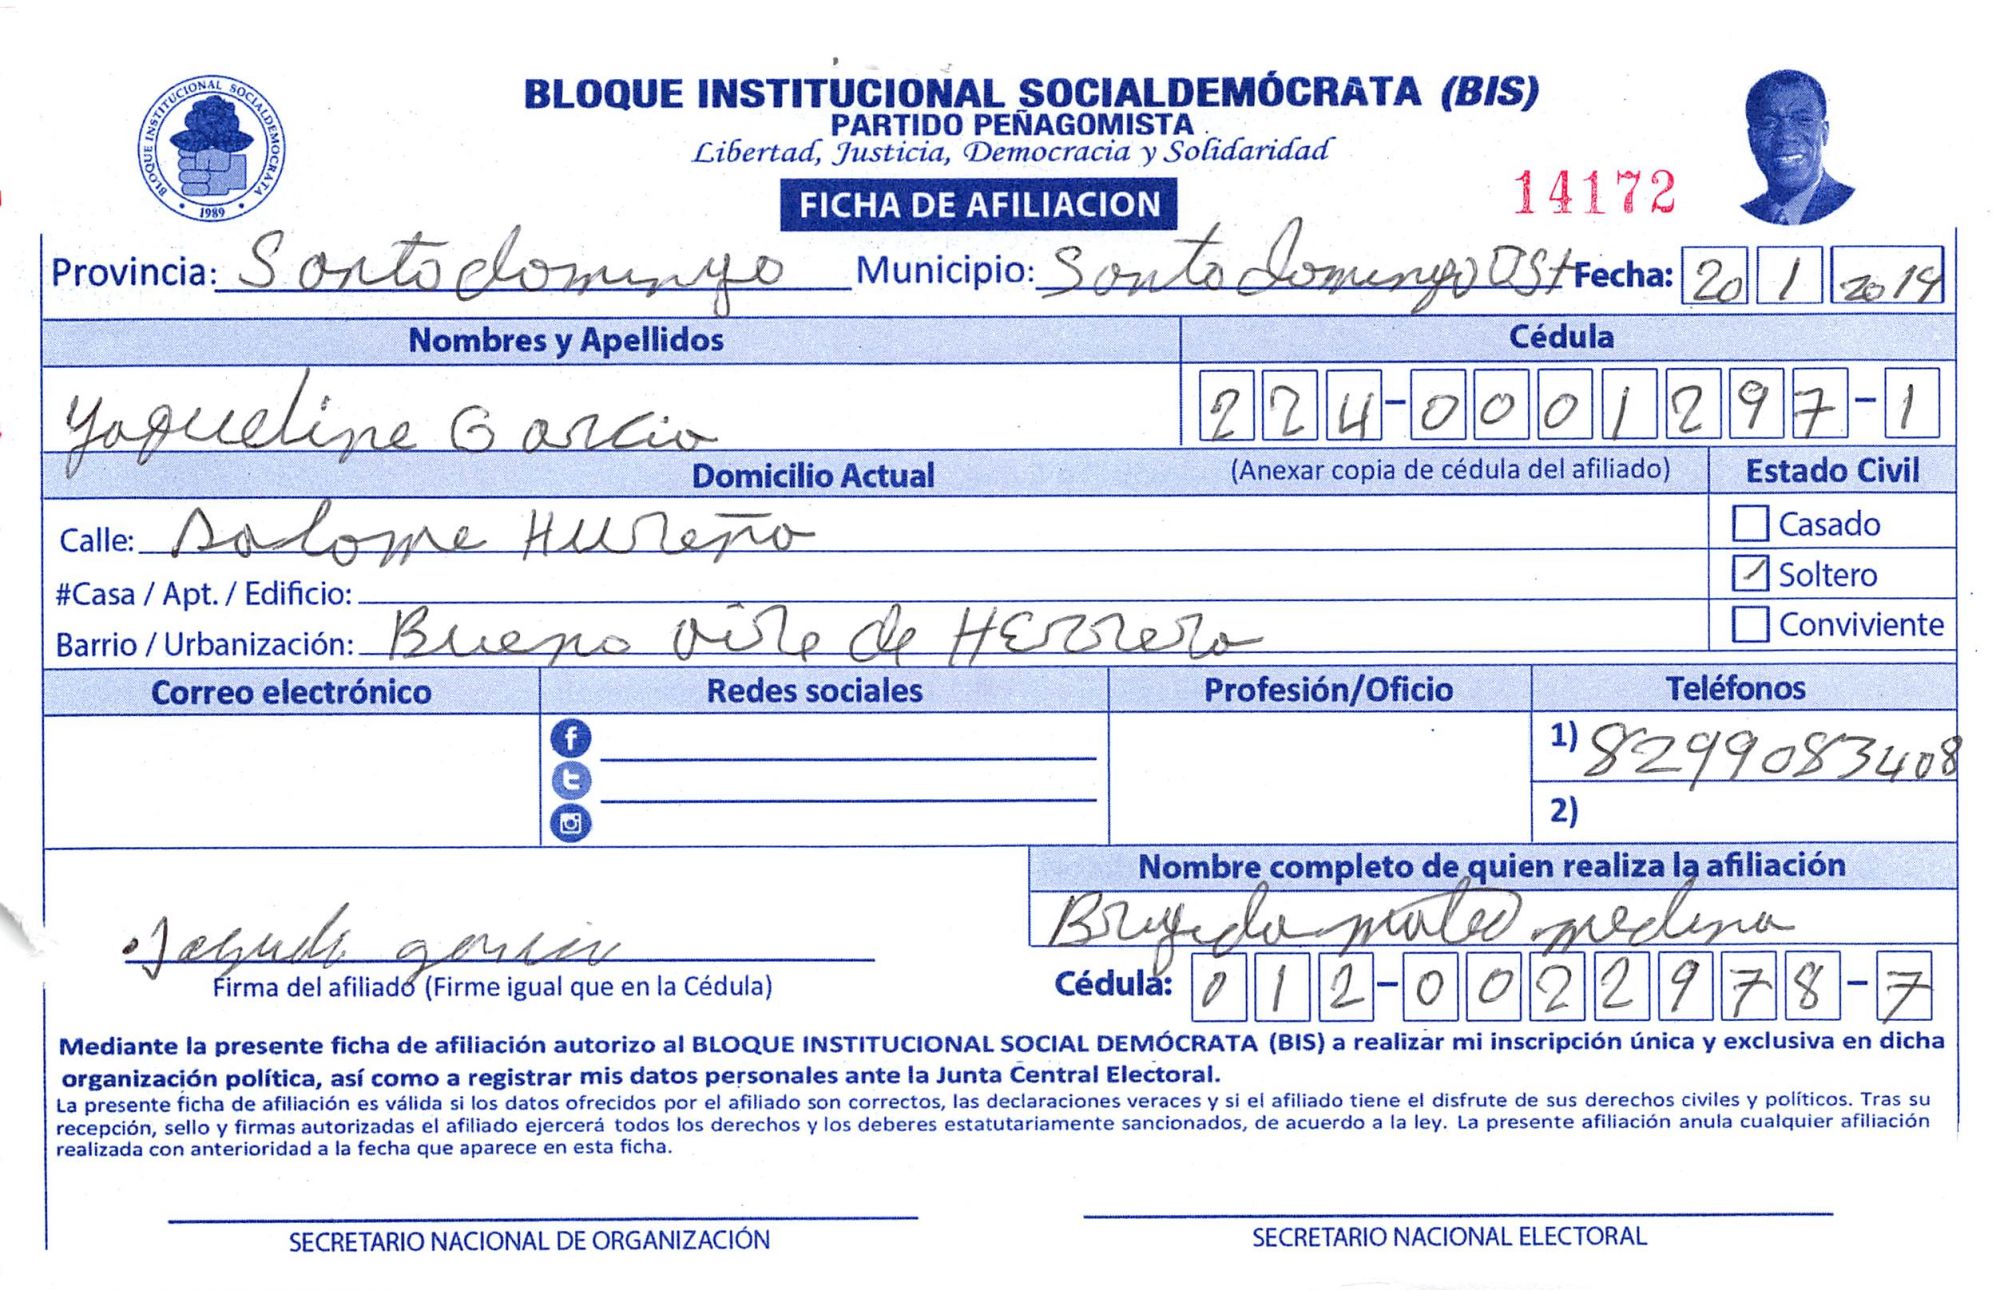 BLOQUE INSTITUCIONAL SOCIALDEMÓCRATA (BIS)
PARTIDO PEÑAGOMISTA
Libertad, Justicia, Democracia y Solidaridad
BLOQUE INSTITUCIONAL SOCIALDEMOCRATA
• 1989 •
FICHA DE AFILIACION
14172
Provincia: Santo domingo Municipio: Santo domingo Ost Fecha: 20 1 2019
Nombres y Apellidos Cédula
Yaqueline Garcia 224-0001297-1
Domicilio Actual (Anexar copia de cédula del afiliado) Estado Civil
Calle: Salome Hureña Casado
#Casa / Apt. / Edificio: Soltero
Barrio / Urbanización: Bueno Aire de Herrera Conviviente
Correo electrónico Redes sociales Profesión/Oficio Teléfonos
1) 8299083408
2)
Nombre completo de quien realiza la afiliación
Brigida mateo medina
garcia
Firma del afiliado (Firme igual que en la Cédula) Cédula: 012-0022978-7
Mediante la presente ficha de afiliación autorizo al BLOQUE INSTITUCIONAL SOCIAL DEMÓCRATA (BIS) a realizar mi inscripción única y exclusiva en dicha
organización política, así como a registrar mis datos personales ante la Junta Central Electoral.
La presente ficha de afiliación es válida si los datos ofrecidos por el afiliado son correctos, las declaraciones veraces y si el afiliado tiene el disfrute de sus derechos civiles y políticos. Tras su
recepción, sello y firmas autorizadas el afiliado ejercerá todos los derechos y los deberes estatutariamente sancionados, de acuerdo a la ley. La presente afiliación anula cualquier afiliación
realizada con anterioridad a la fecha que aparece en esta ficha.
SECRETARIO NACIONAL DE ORGANIZACIÓN SECRETARIO NACIONAL ELECTORAL